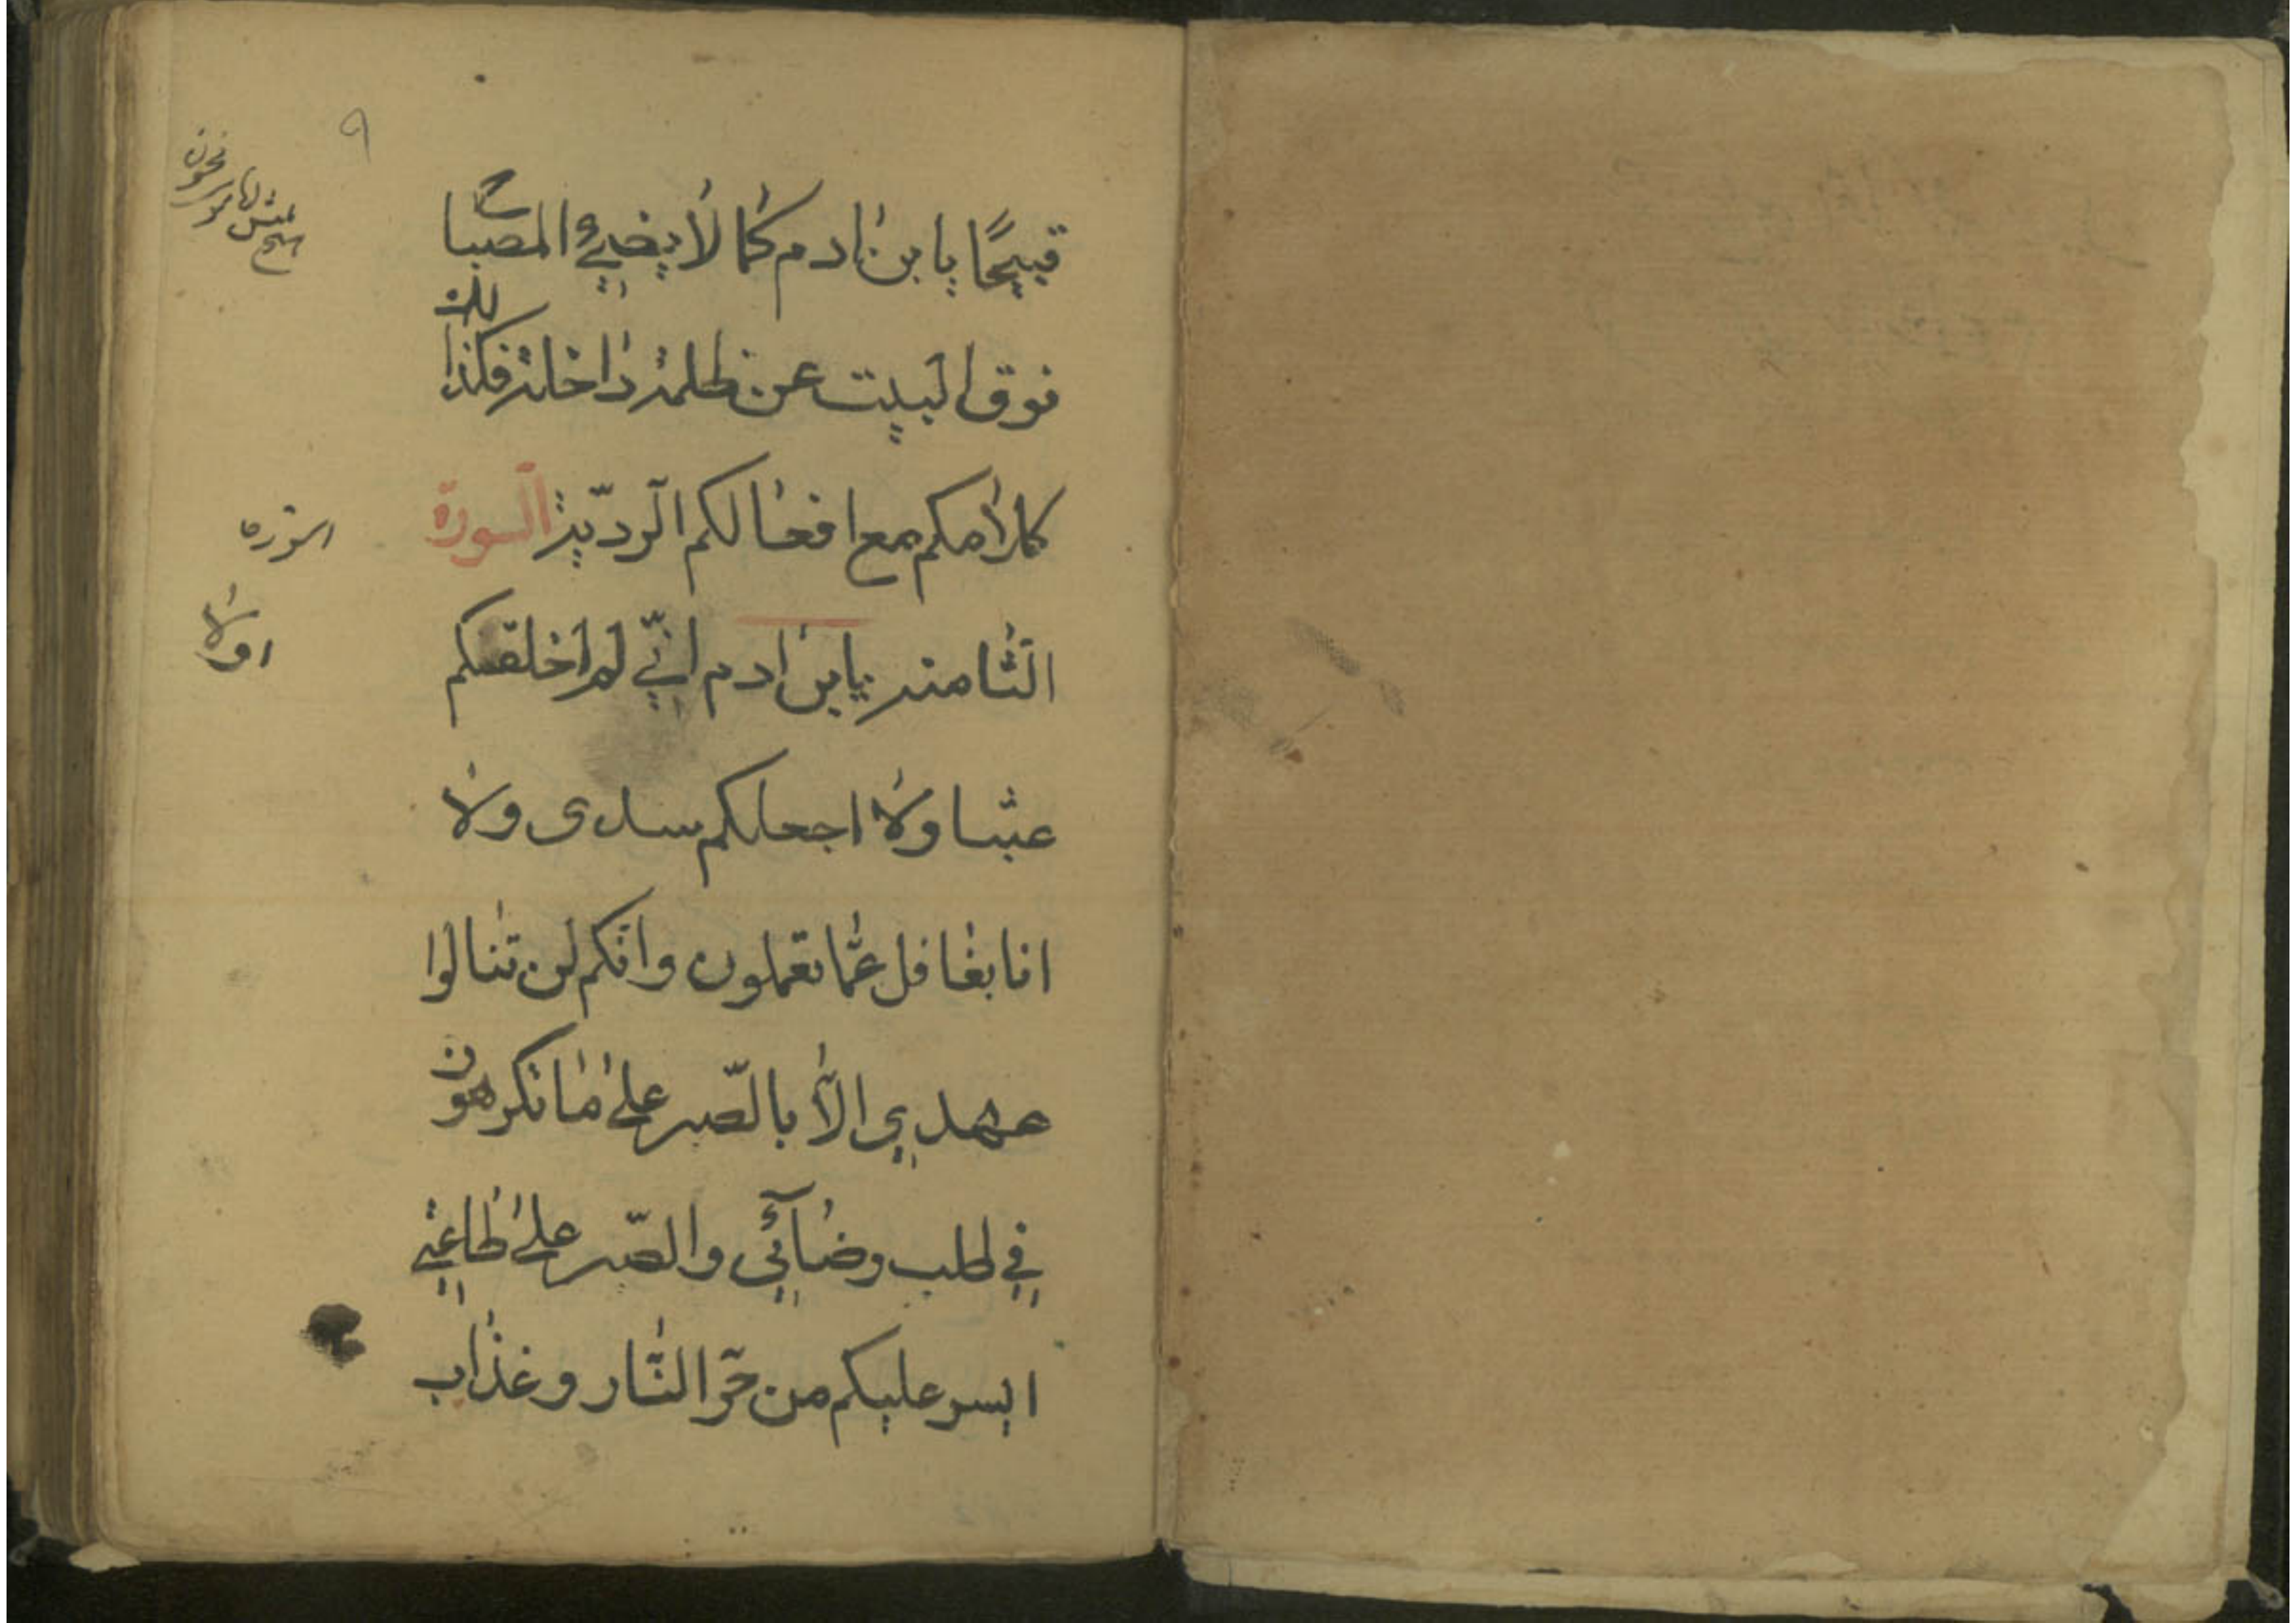 ٩
قبيحًا يا بن ادم كما لا يضيئ المصباح
فوق البيت عن ظلمة داخلة فكذلك
كلامكم مع افعالكم الرديّة السورة
الثامنة يا بن ادم انّي لم اخلقكم
عبثا ولا اجعلكم سدى ولا
انا بغافل عمّا تعملون وانّكم لن تنالوا
عهدي الّا بالصّبر على ما تكرهون
في طلب رضائي والصّبر على طاعتي
ايسر عليكم من حرّ النّار وعذاب